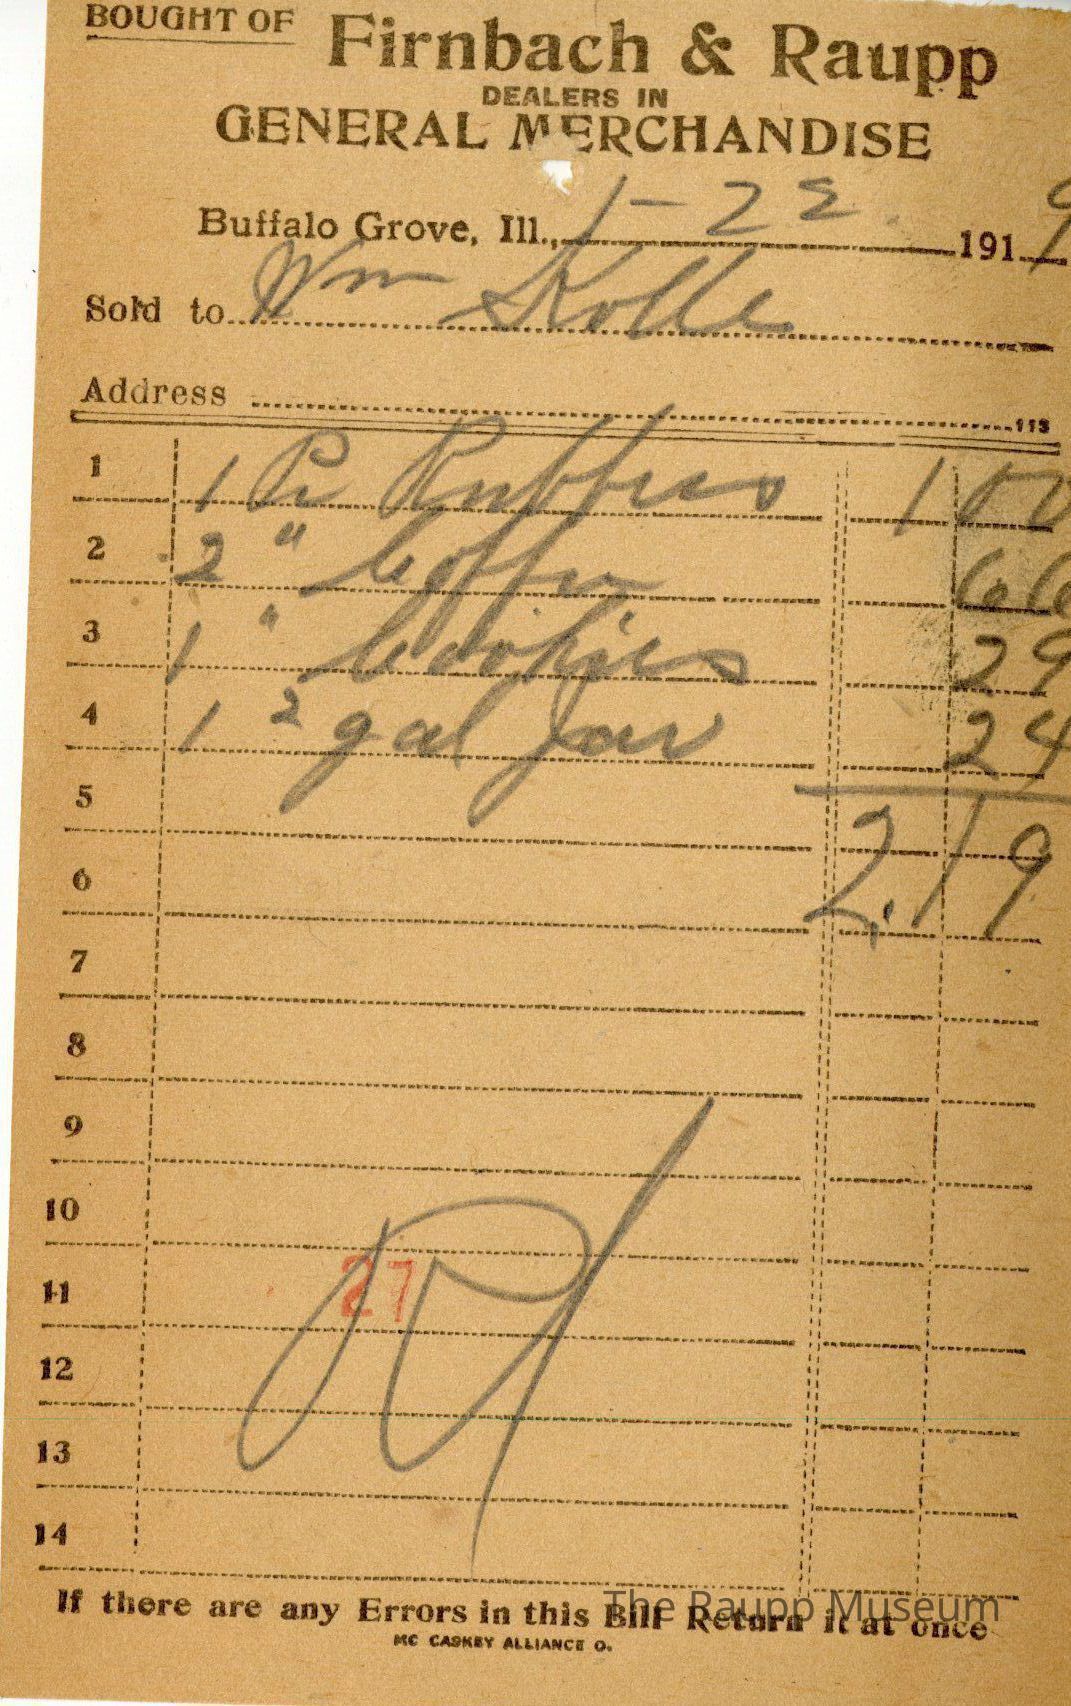 BOUGHT OF Firnbach & Raupp
DEALERS IN
GENERAL MERCHANDISE
Buffalo Grove, Ill., 1-22 1919
Sold to Wm Kolle
Address
113
1 1 Pr Rubbers 1 00
2 2 " Coffee 66
3 1 " Cookies 29
4 1 2 gal Jar 24
5
2.19
6
7
8
9
10
27
11
12
13
14
If there are any Errors in this Bill Return it at once
The Raupp Museum
MC CASKEY ALLIANCE O.